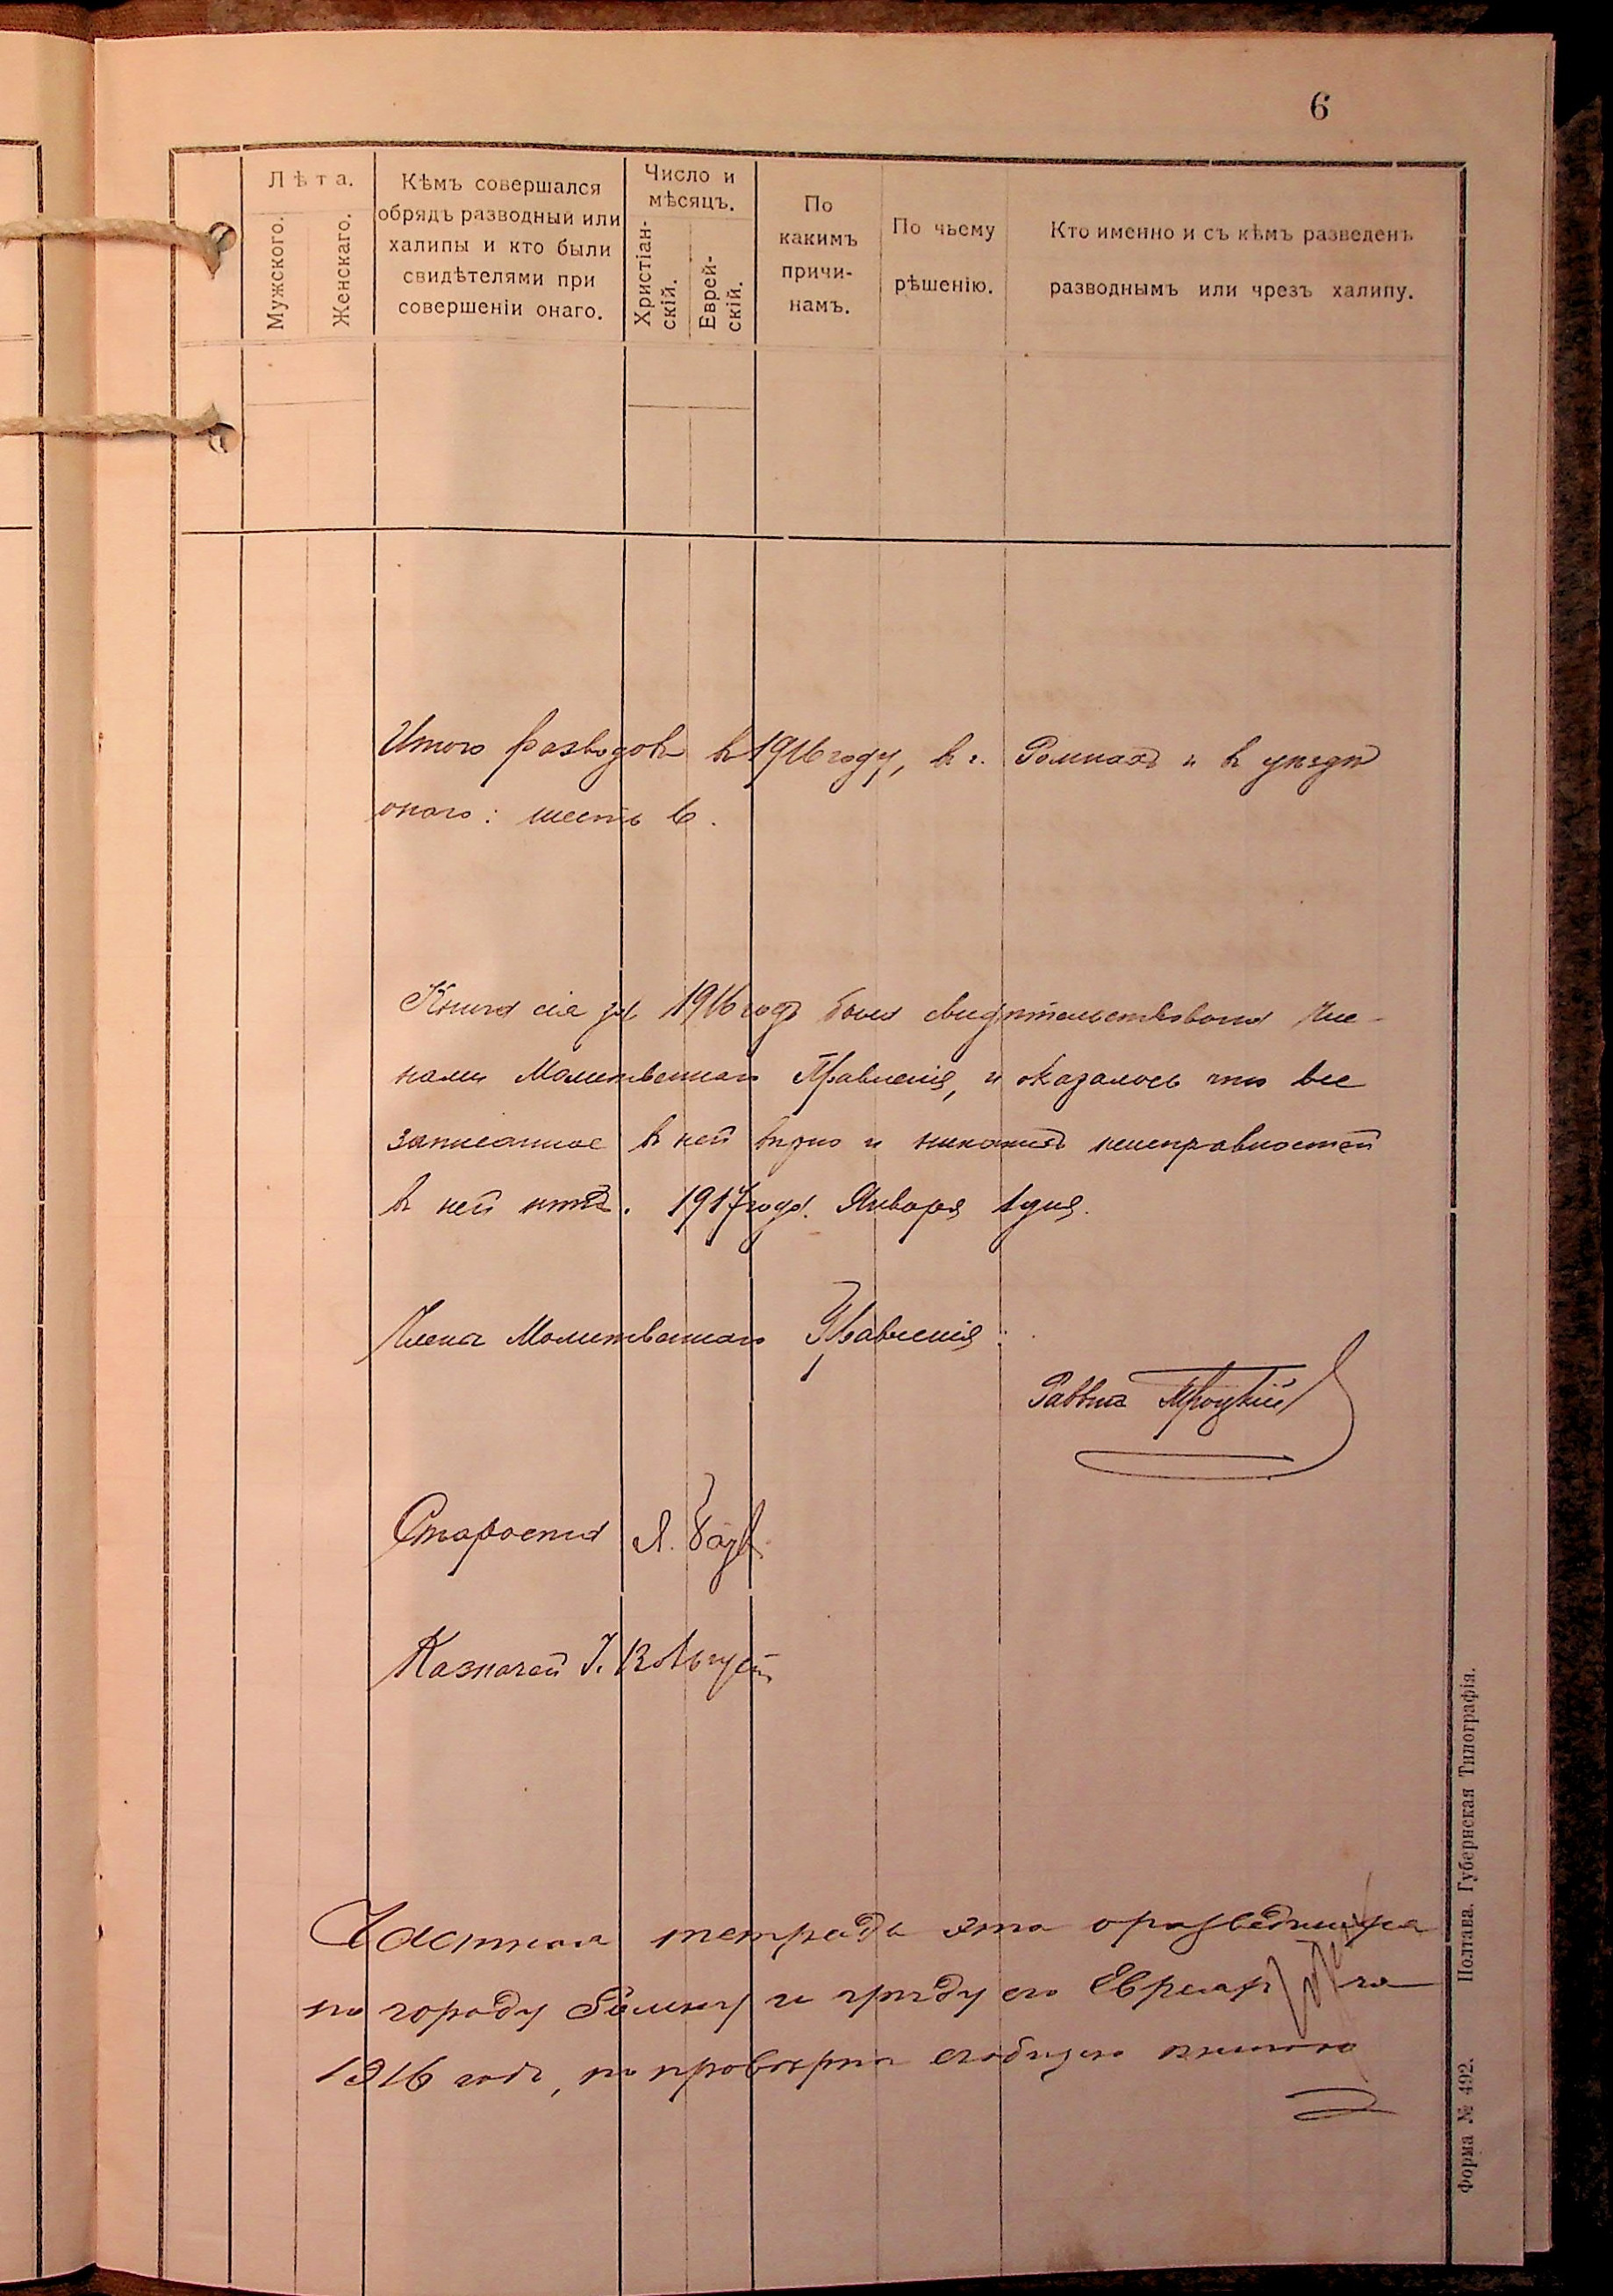 6
Лѣта.
Мужского.
Женскаго.
Кѣмъ совершался
обрядъ разводный или
халипы и кто были
свидѣтелями при
совершеніи онаго.
Число и
мѣсяцъ.
Христіан-
скій.
Еврей-
скій.
По
какимъ
причи-
намъ.
По чьему
рѣшенію.
Кто именно и съ кѣмъ разведенъ
разводнымъ или чрезъ халипу.
Итого разводовъ въ 1916 году, въ г. Ромнахъ и въ уѣздѣ
онаго: шесть 6.
Книга сія за 1916 годъ была свидѣтельствована Чле-
нами Молитвеннаго Правленія, и оказалось что все
записанное въ ней вѣрно и никакихъ неисправностей
въ ней нѣтъ. 1917 года. Января 1 дня.
Члены Молитвеннаго Правленія:
Раввинъ Троцкій
Староста Я.
Казначей І.
тетрадь эта о
по городу Ромну и уѣзду его Евреяхъ за
1916 годъ, по провѣркѣ книгою
Полтава. Губернская Типографія.
Форма № 492.